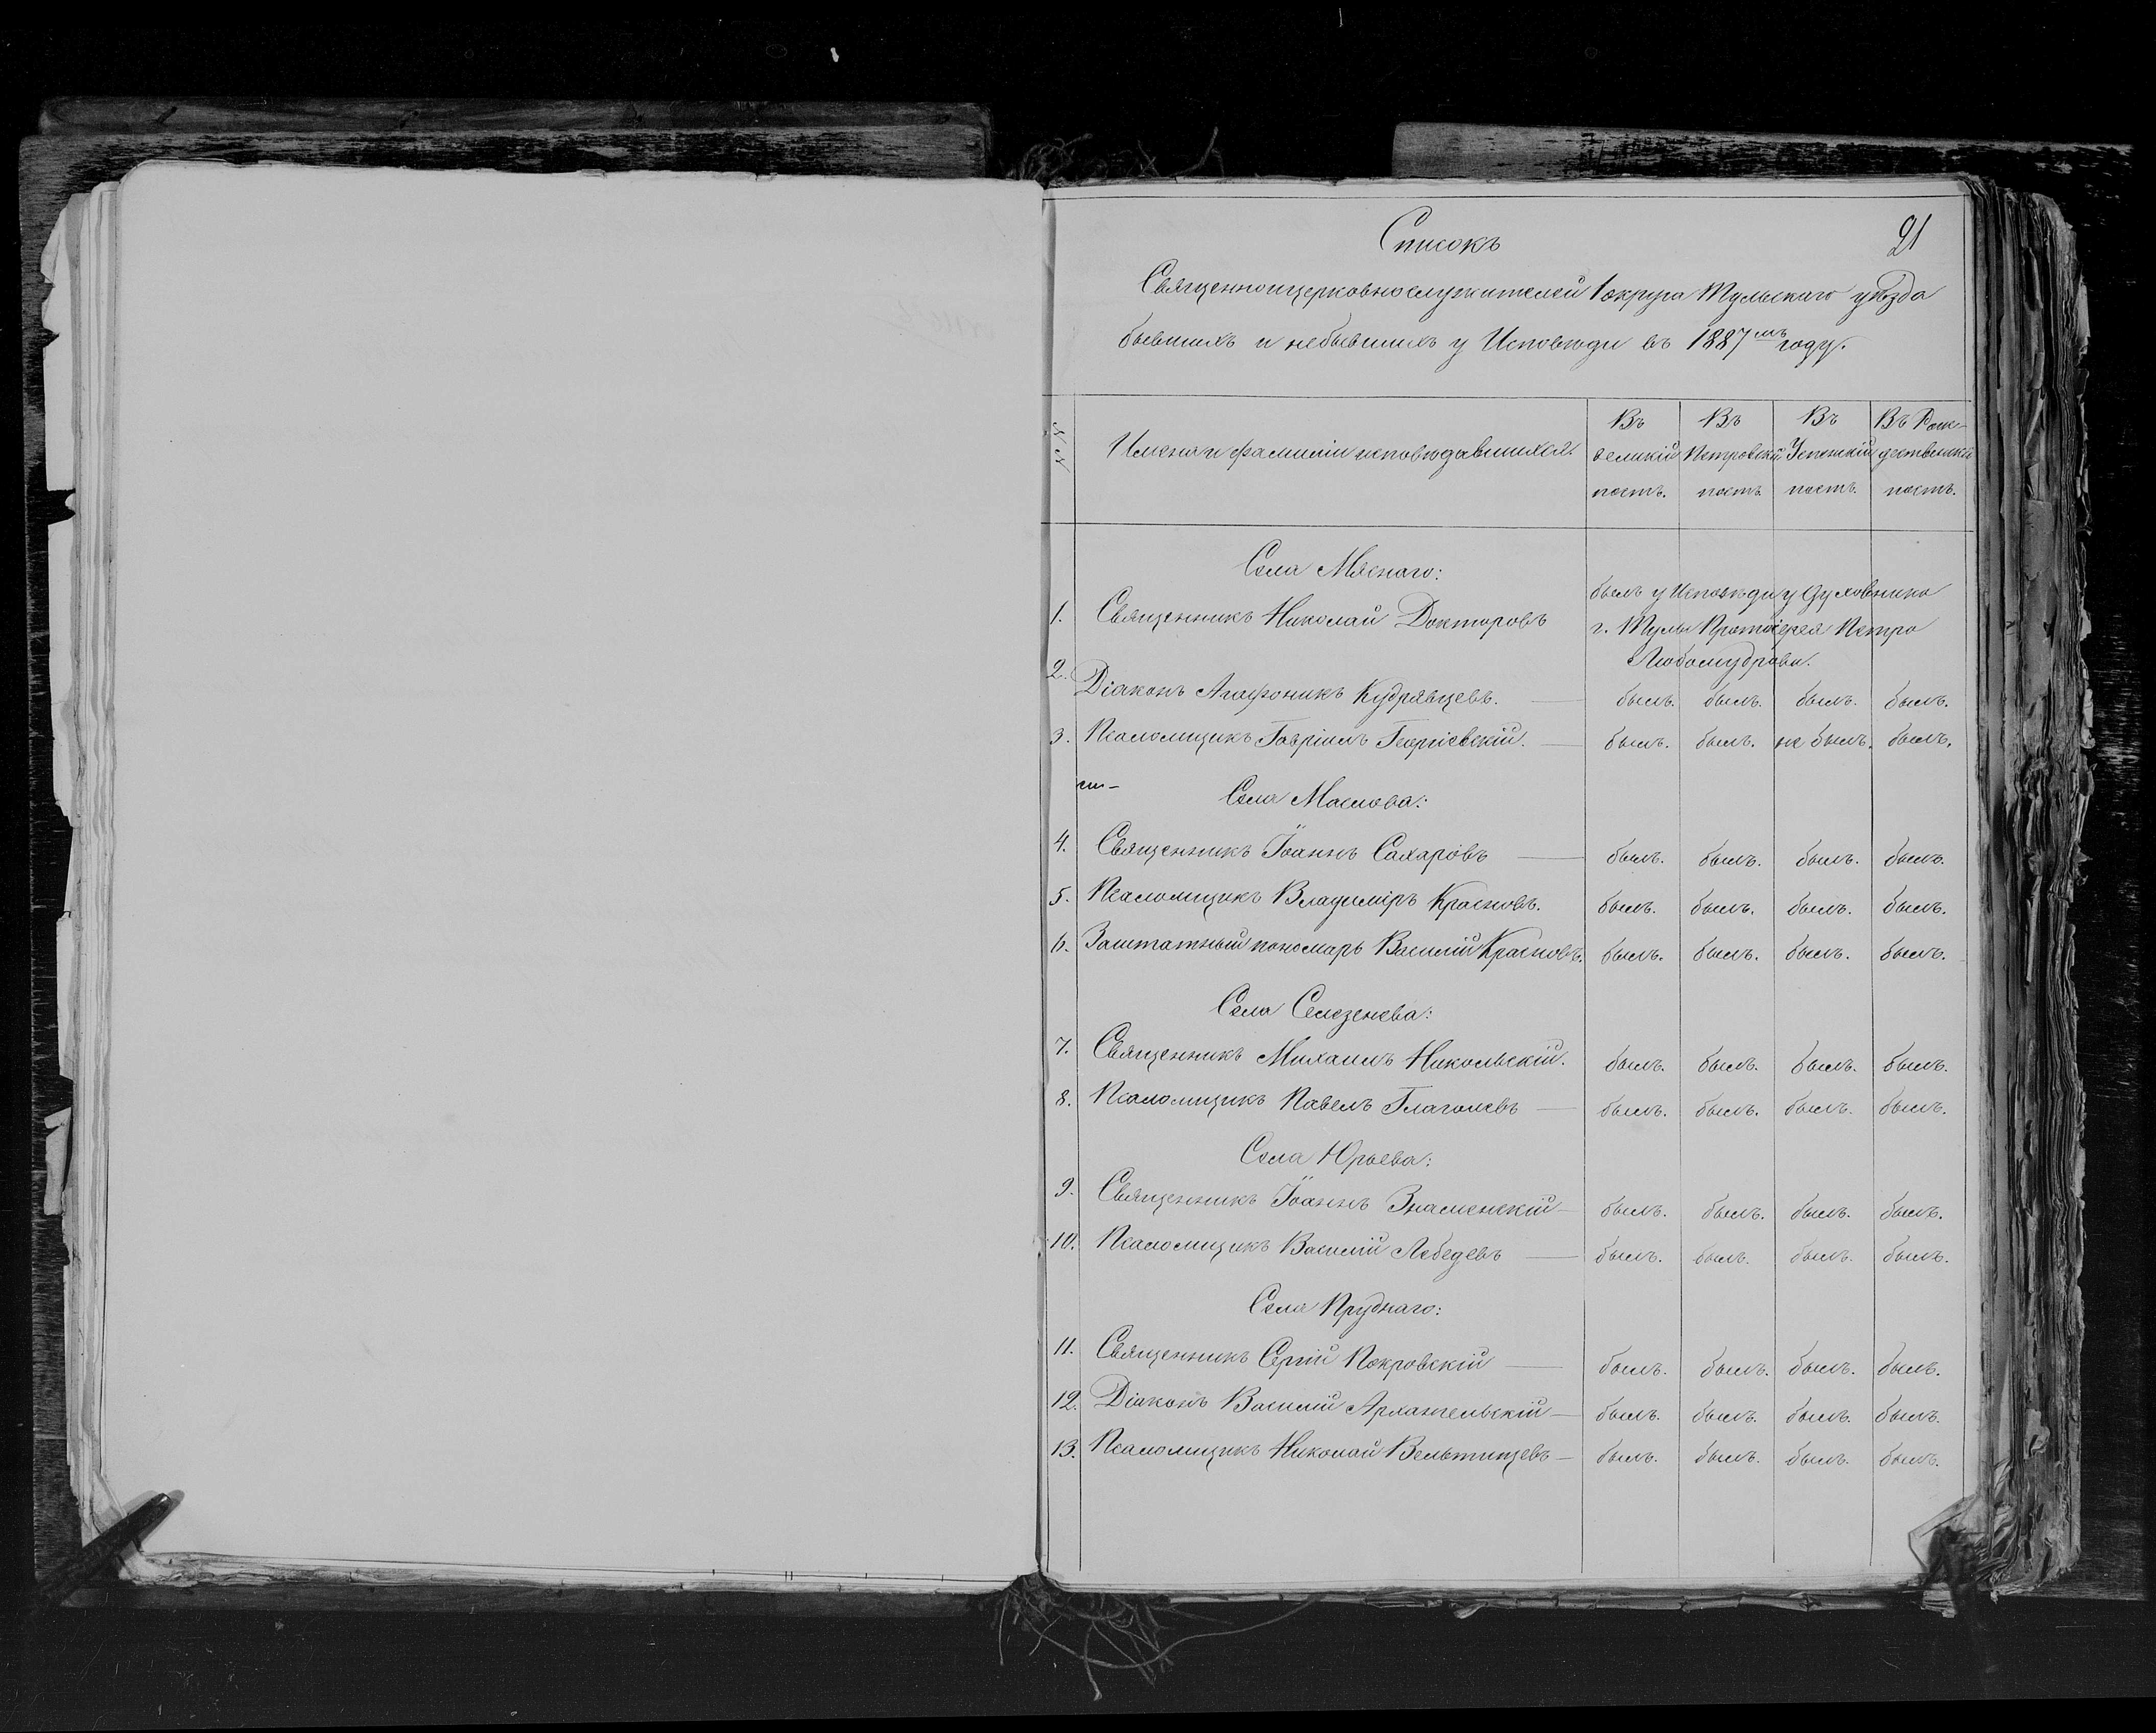 21
Списокъ
Священноицерковнослужителей 1 округа Тульскаго уѣзда
бывшихъ и небывшихъ у Исповѣди въ 1887мъ году.
№№ Имена и фамиліи исповѣдавшихся. Въ великій постъ. Въ Петровскій постъ. Въ Успенскій постъ. Въ Рождественскій постъ.
Села Мяснаго:
1. Священникъ Николай Докторовъ былъ у Исповѣди у Духовника
г. Тулы Протоіерея Петра
Любомудрова.
2. Діаконъ Агафоникъ Кудрявцевъ. — былъ. былъ. былъ. былъ.
3. Псаломщикъ Гавріилъ Георгіевскій. — былъ. былъ. не былъ. былъ.
Села Маслова:
4. Священникъ Іоаннъ Сахаровъ — былъ. былъ. былъ. былъ.
5. Псаломщикъ Владиміръ Красновъ. былъ. былъ. былъ. былъ.
6. Заштатный пономарь Василій Красновъ. былъ. былъ. былъ. былъ.
Села Селезенева:
7. Священникъ Михаилъ Никольскій. былъ. былъ. былъ. былъ.
8. Псаломщикъ Павелъ Глаголевъ — былъ. былъ. былъ. былъ.
Села Юрьева:
9. Священникъ Іоаннъ Знаменскій — былъ. былъ. былъ. былъ.
10. Псаломщикъ Василій Лебедевъ — былъ. былъ. былъ. былъ.
Села Пруднаго:
11. Священникъ Сергій Покровскій — былъ. былъ. былъ. былъ.
12. Діаконъ Василій Архангельскій — былъ. былъ. былъ. былъ.
13. Псаломщикъ Николай Вельтищевъ — былъ. былъ. былъ. былъ.